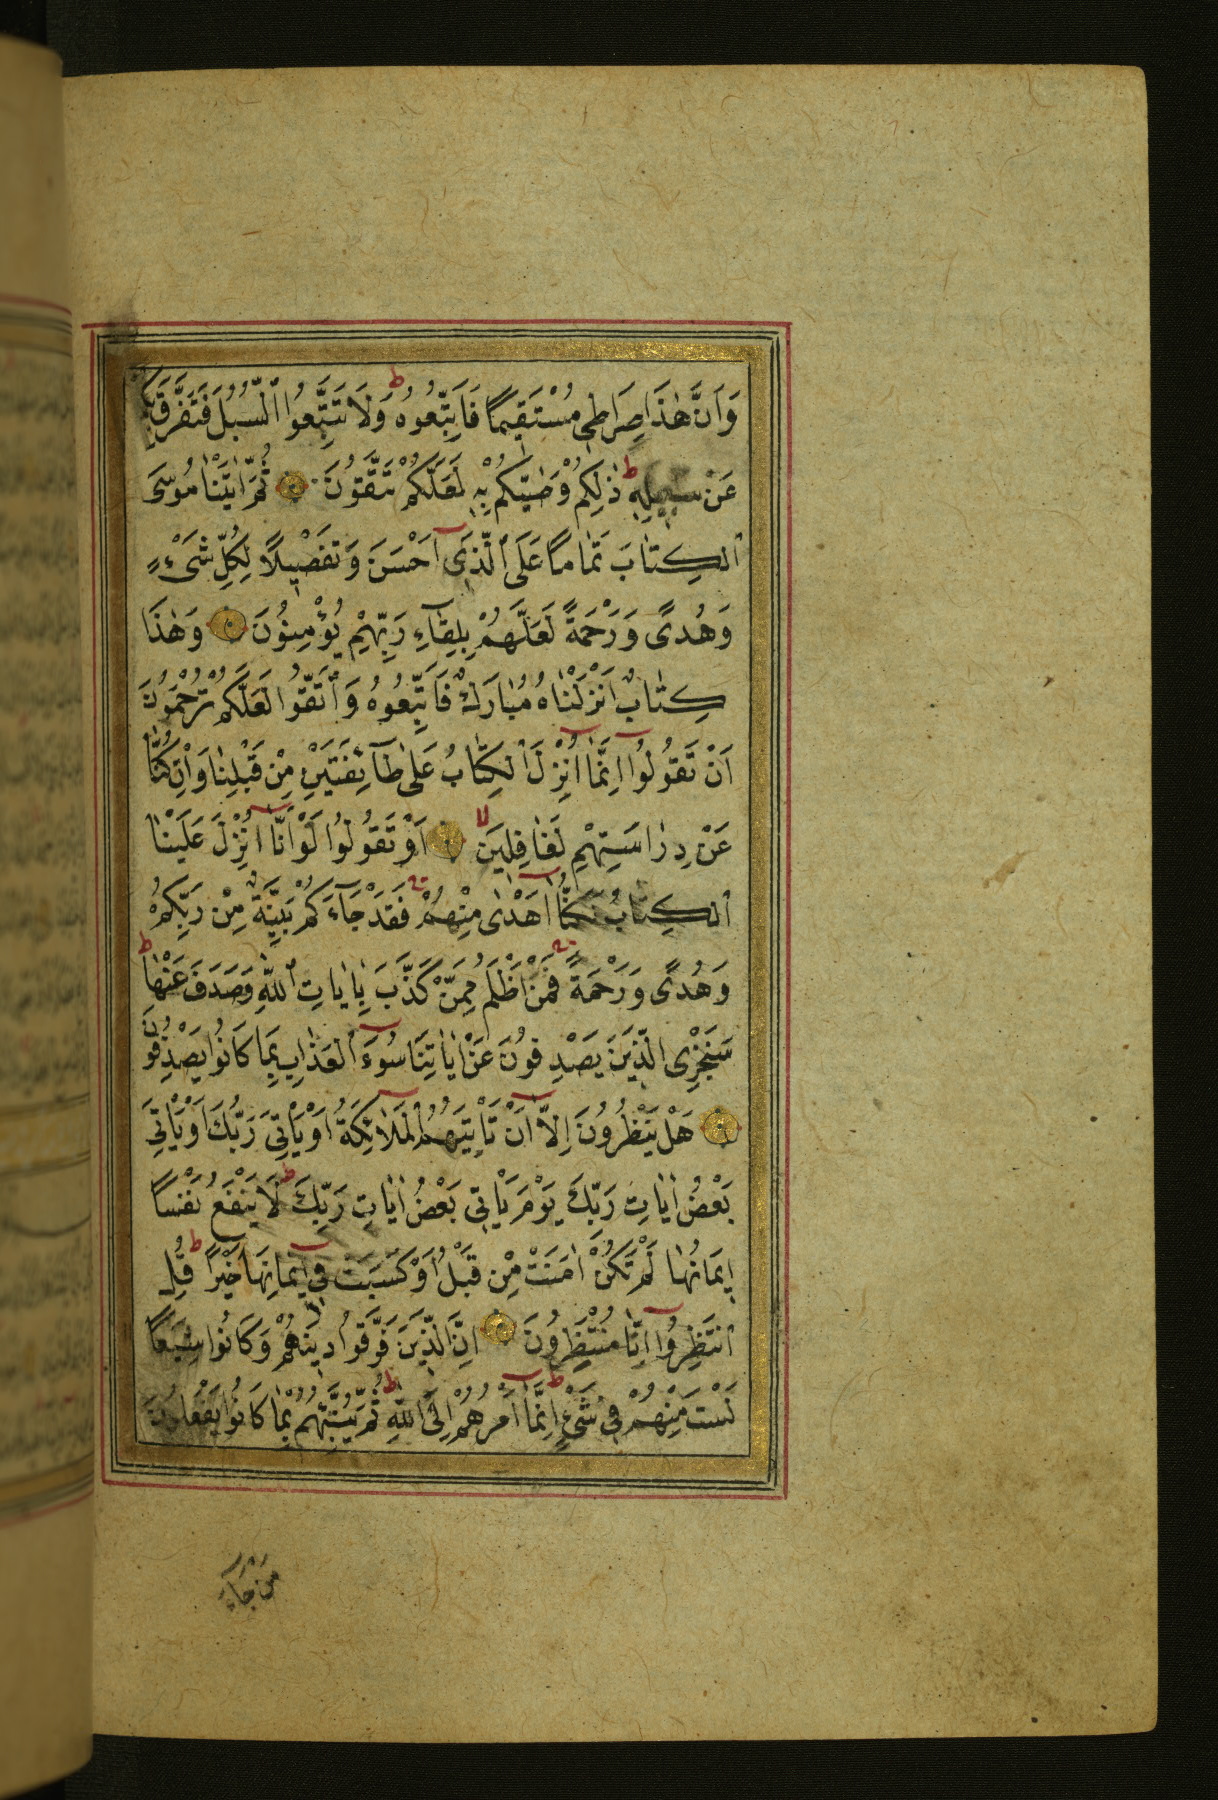 وَاَنَّ هٰذَا صِرَاطٖى مُسْتَقٖيمًا فَاتَّبِعُوهُ ط وَلَا تَتَّبِعُوا السُّبُلَ فَتَفَرَّقَ بِكُمْ
عَنْ سَبٖيلِهٖ ط ذٰلِكُمْ وَصّٰيكُمْ بِهٖ لَعَلَّكُمْ تَتَّقُونَ ثُمَّ اٰتَيْنَا مُوسَى
الْكِتَابَ تَمَامًا عَلَى الَّذٖى اَحْسَنَ وَتَفْصٖيلًا لِكُلِّ شَىْءٍ
وَهُدًى وَرَحْمَةً لَعَلَّهُمْ بِلِقَاءِ رَبِّهِمْ يُؤْمِنُونَ وَهٰذَا
كِتَابٌ اَنْزَلْنَاهُ مُبَارَكٌ فَاتَّبِعُوهُ وَاتَّقُوا لَعَلَّكُمْ تُرْحَمُونَ
اَنْ تَقُولُوا اِنَّمَا اُنْزِلَ الْكِتَابُ عَلٰى طَائِفَتَيْنِ مِنْ قَبْلِنَا وَاِنْ كُنَّا
عَنْ دِرَاسَتِهِمْ لَغَافِلٖينَ لا اَوْ تَقُولُوا لَوْ اَنَّا اُنْزِلَ عَلَيْنَا
الْكِتَابُ لَكُنَّا اَهْدٰى مِنْهُمْ فَقَدْ جَاءَكُمْ بَيِّنَةٌ مِنْ رَبِّكُمْ
وَهُدًى وَرَحْمَةً فَمَنْ اَظْلَمُ مِمَّنْ كَذَّبَ بِاٰيَاتِ اللّٰهِ وَصَدَفَ عَنْهَا ط
سَنَجْزِى الَّذٖينَ يَصْدِفُونَ عَنْ اٰيَاتِنَا سُوءَ الْعَذَابِ بِمَا كَانُوا يَصْدِفُونَ
هَلْ يَنْظُرُونَ اِلَّا اَنْ تَاْتِيَهُمُ الْمَلٰئِكَةُ اَوْ يَاْتِىَ رَبُّكَ اَوْ يَاْتِىَ
بَعْضُ اٰيَاتِ رَبِّكَ يَوْمَ يَاْتٖى بَعْضُ اٰيَاتِ رَبِّكَ ط لَا يَنْفَعُ نَفْسًا
اٖيمَانُهَا لَمْ تَكُنْ اٰمَنَتْ مِنْ قَبْلُ اَوْ كَسَبَتْ فٖى اٖيمَانِهَا خَيْرًا ط قُلِ
انْتَظِرُوا اِنَّا مُنْتَظِرُونَ اِنَّ الَّذٖينَ فَرَّقُوا دٖينَهُمْ وَكَانُوا شِيَعًا
لَسْتَ مِنْهُمْ فٖى شَىْءٍ ط اِنَّمَا اَمْرُهُمْ اِلَى اللّٰهِ ط ثُمَّ يُنَبِّئُهُمْ بِمَا كَانُوا يَفْعَلُونَ
مَنْ جَاءَ